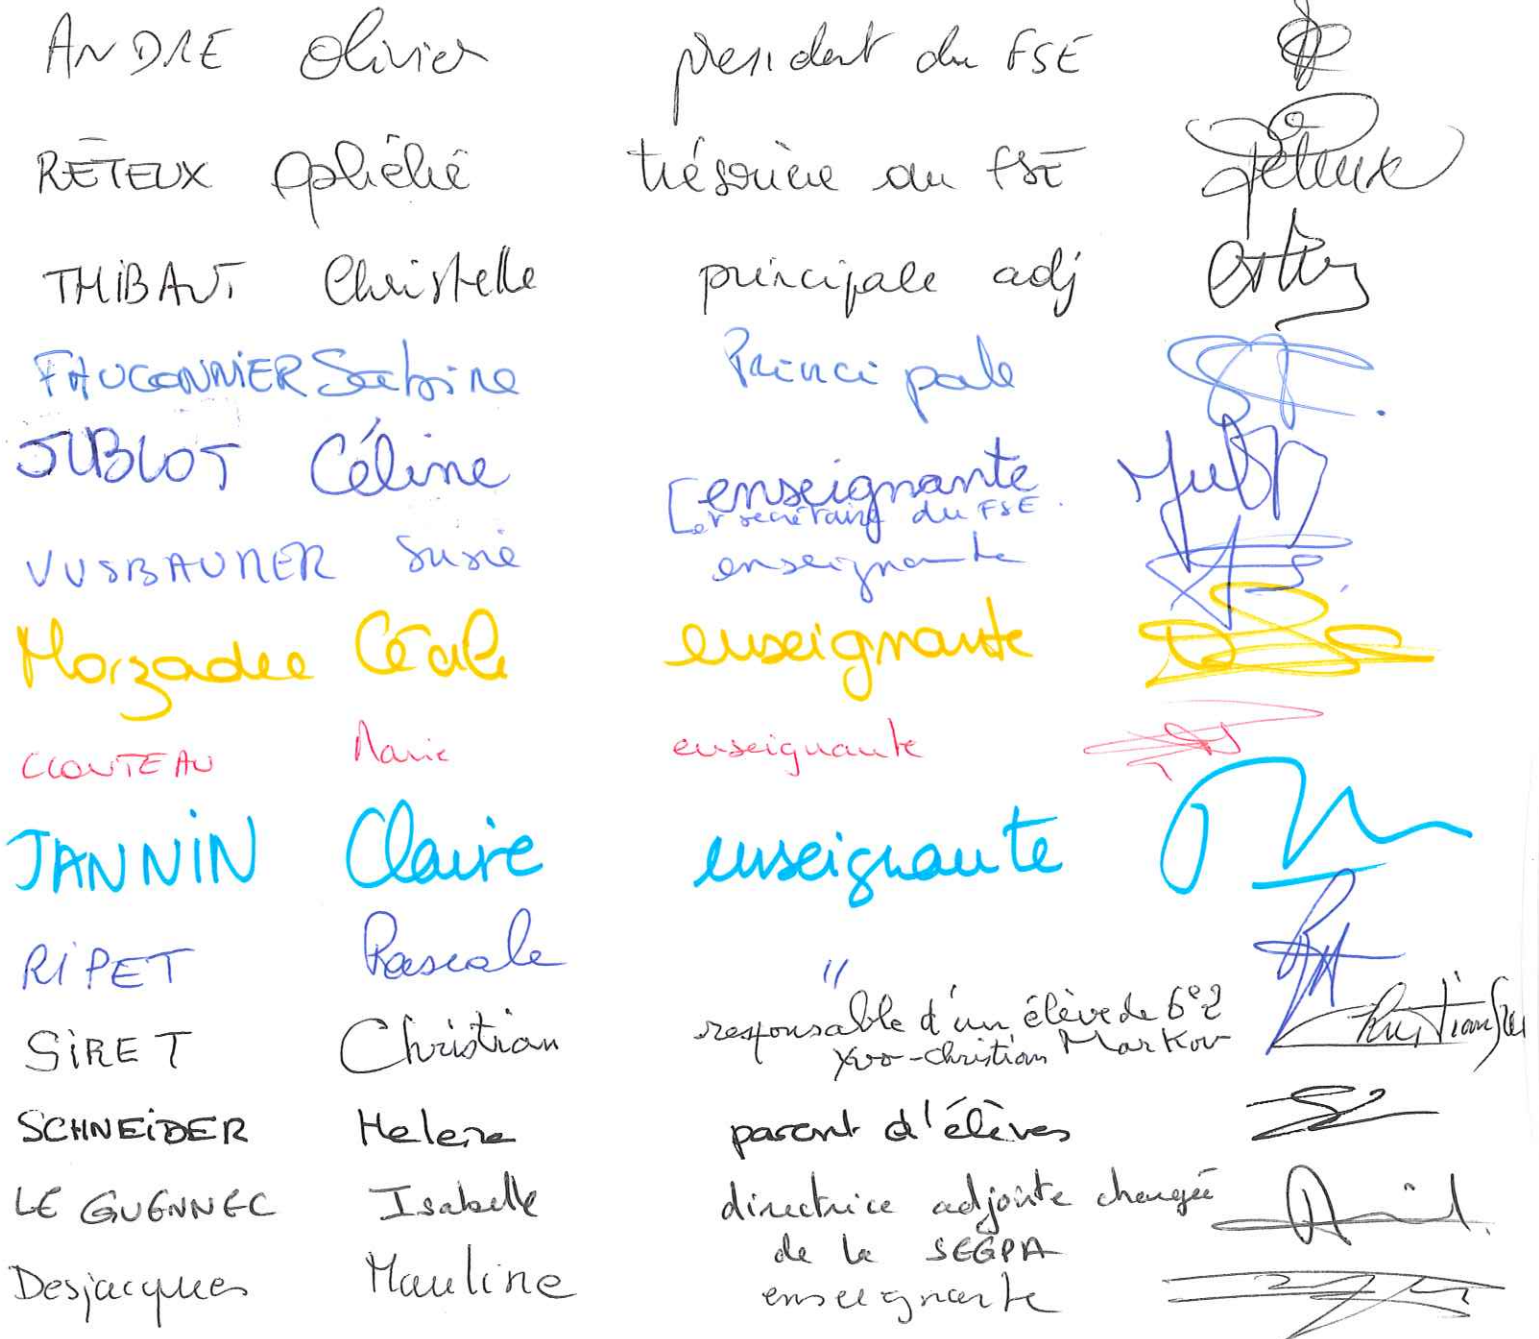 ANDRE Olivier président du FSE
RETEUX Ophélie trésorière du FSE Reteux
THIBAUT Christelle principale adj
FAUCONNIER Sabine Principale
JUBLOT Céline [enseignante
et secrétaire du FSE.
VUSBAUMER Susie enseignante
Morzadec Cécile enseignante
CLOUTEAU Marie enseignante
JANNIN Claire enseignante
RIPET Pascale "
SIRET Christian responsable d'un élève de 6e2
Yvo-Christian Markov
SCHNEIDER Helene parent d'élèves
LE GUENNEC Isabelle directrice adjointe chargée
de la SEGPA
Desjacques Mauline enseignante